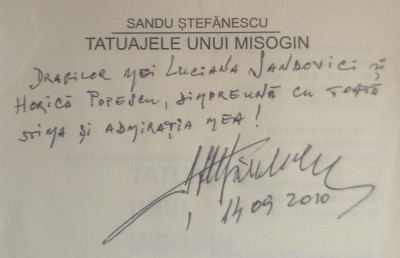 SANDU ȘTEFĂNESCU
TATUAJELE UNUI MISOGIN
DRAGILOR MEI LUCIANA SANDOVICI și
HORICĂ POPESCU, DIMPREUNĂ CU TOATĂ
STIMA ȘI ADMIRAȚIA MEA!
14 09 2010
TATUAJELE
UNUI
MISOGIN